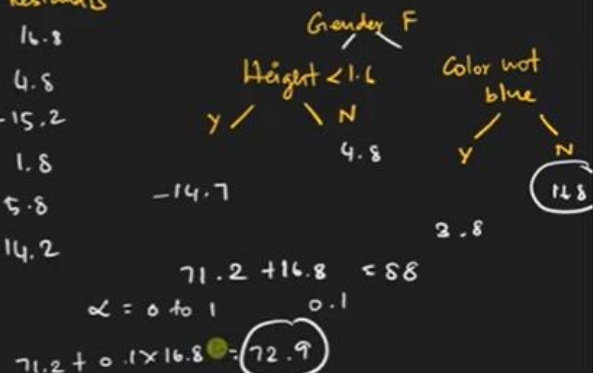 Residuals
16.8
4.8
-15.2
1.8
5.8
14.2
Gender F
Height < 1.6
Y N
-14.7 4.8
Color not
blue
Y N
3.8 16.8
71.2 + 16.8 = 88
α = 0 to 1 0.1
71.2 + 0.1 × 16.8 = 72.9